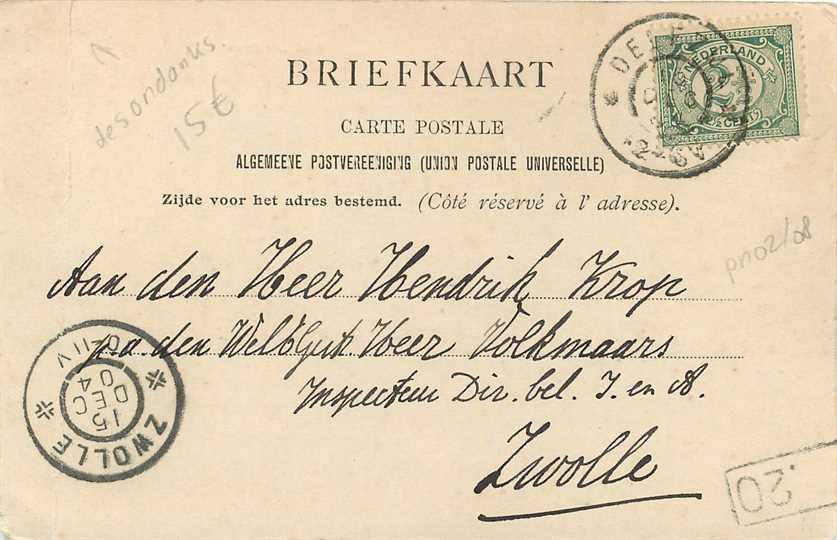 desondanks
15€
BRIEFKAART
CARTE POSTALE
ALGEMEENE POSTVEREENIGING (UNION POSTALE UNIVERSELLE)
Zijde voor het adres bestemd. (Côté réservé à l' adresse).
NEDERLAND
2½
CENT
pn02/08
Aan den Heer Hendrik Krop
p.a. den WelEd.Gestr. Heer Volkmaars
Inspecteur Dir. bel. I. en A.
Zwolle
ZWOLLE
15 DEC 04
.20